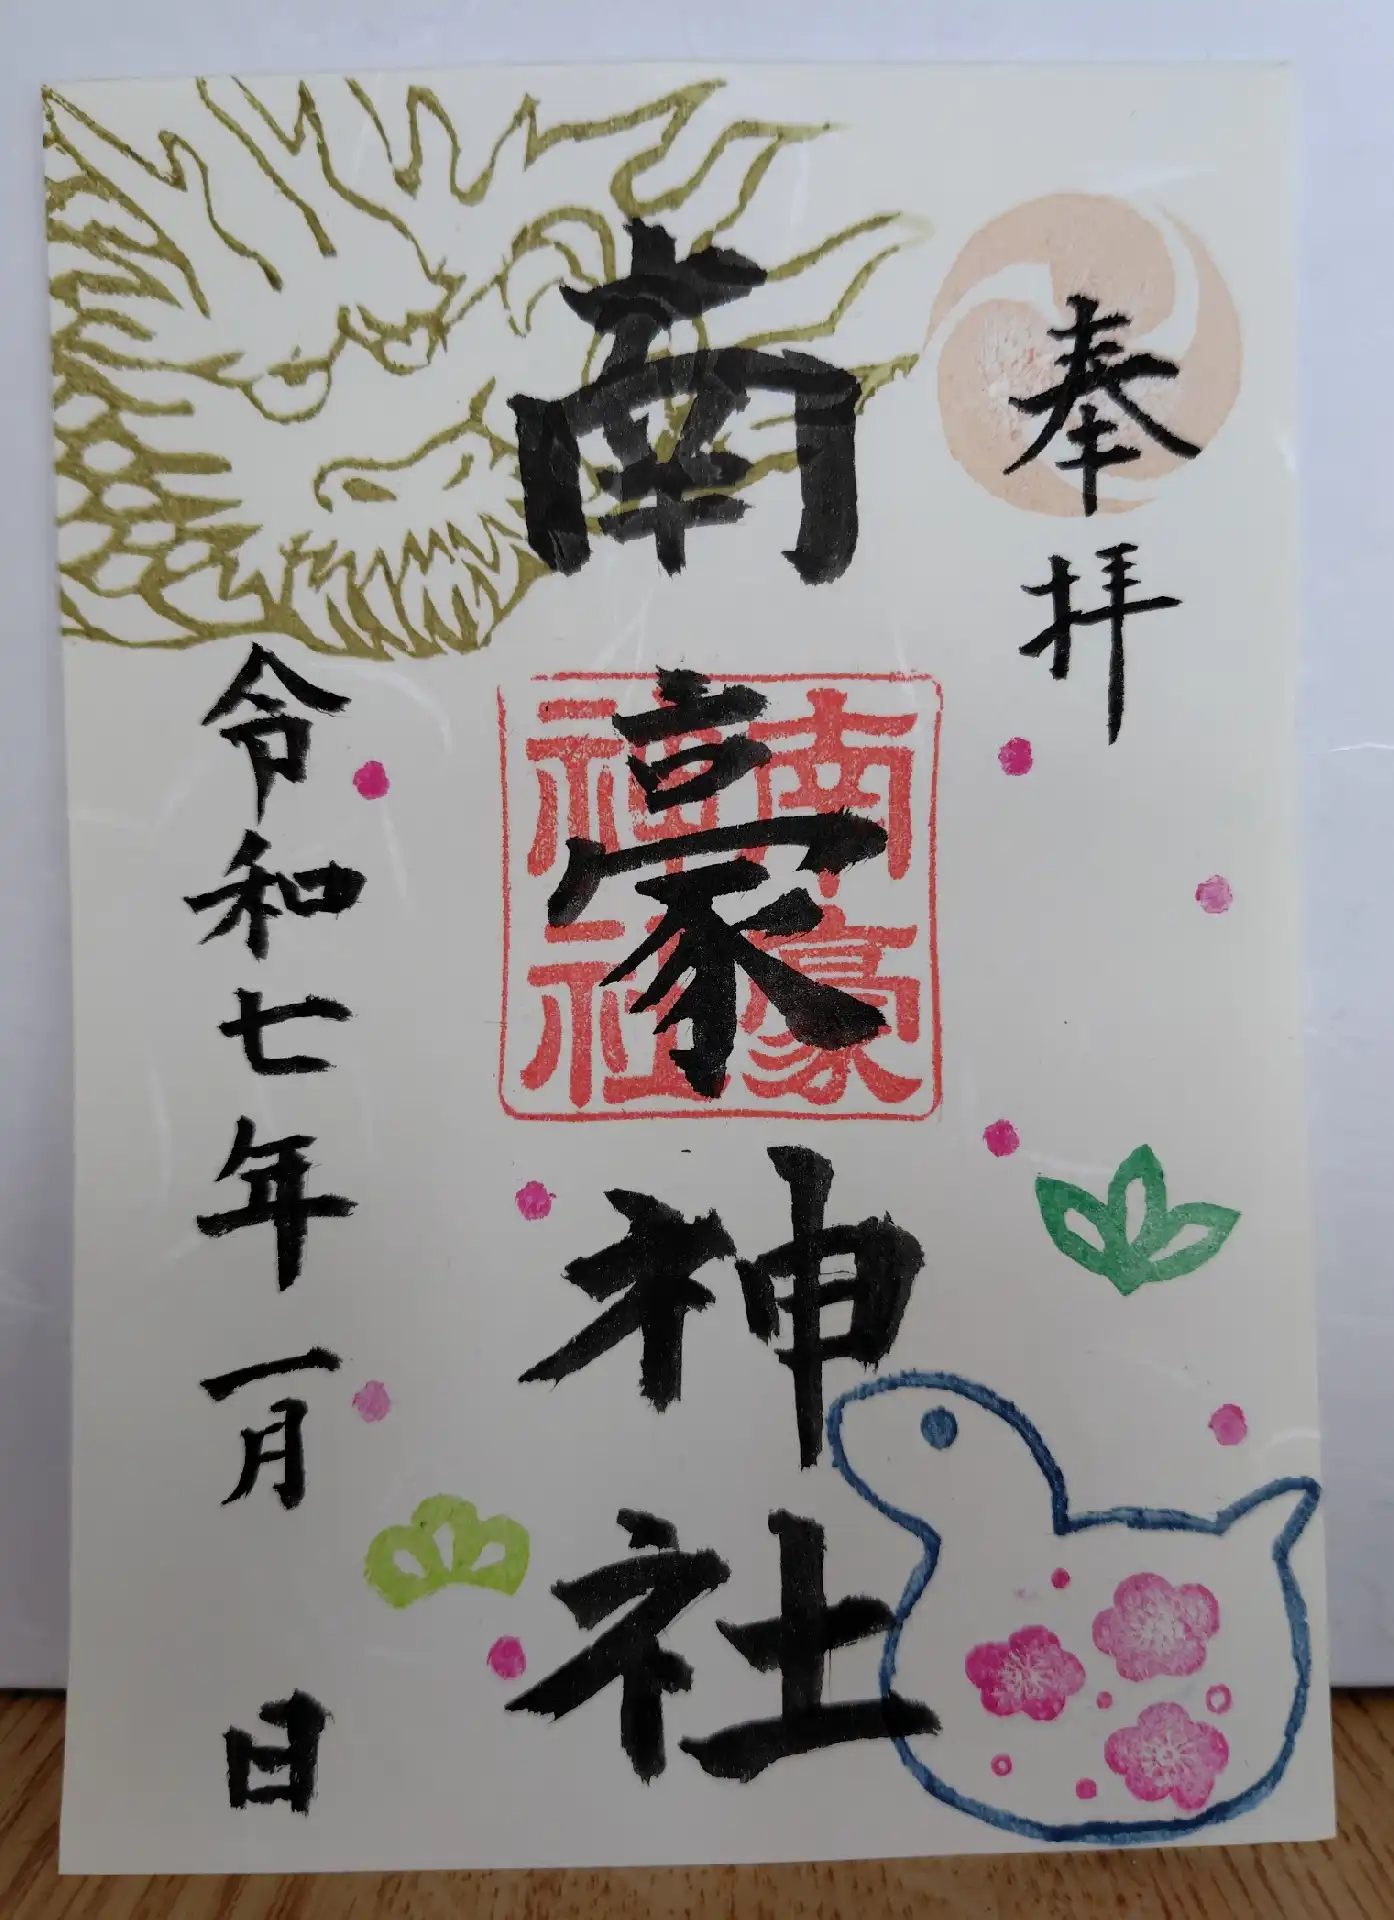 奉拝
南豪神社
南豪
神社
令和七年一月 日